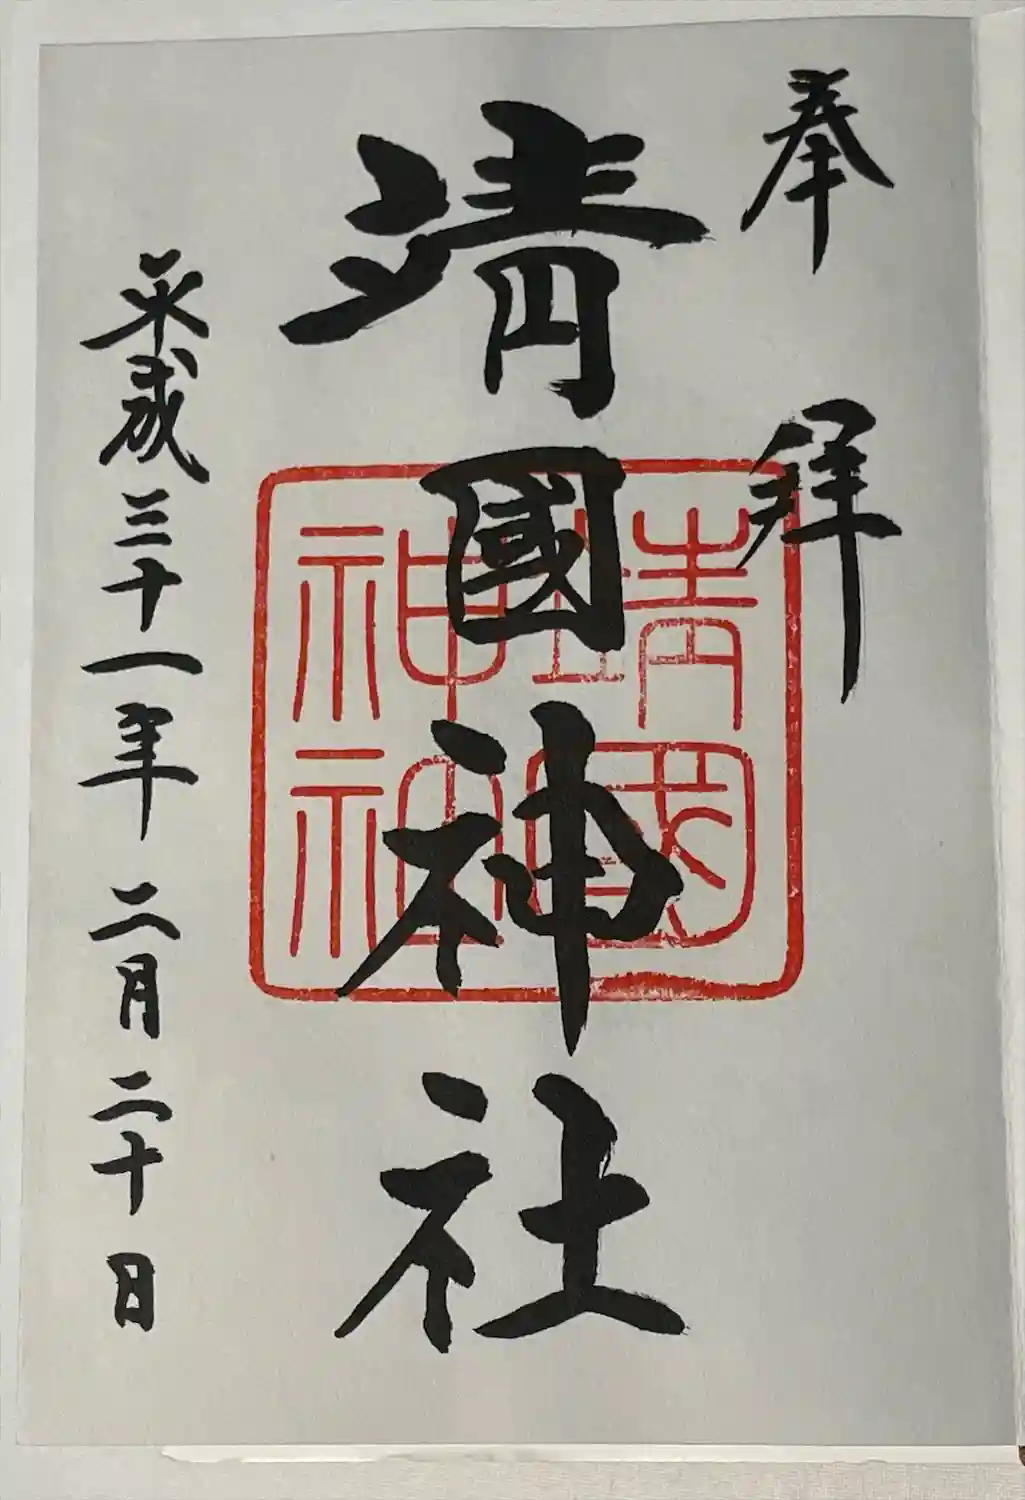 奉拝
靖國神社
靖國
神社
平成三十一年二月二十日